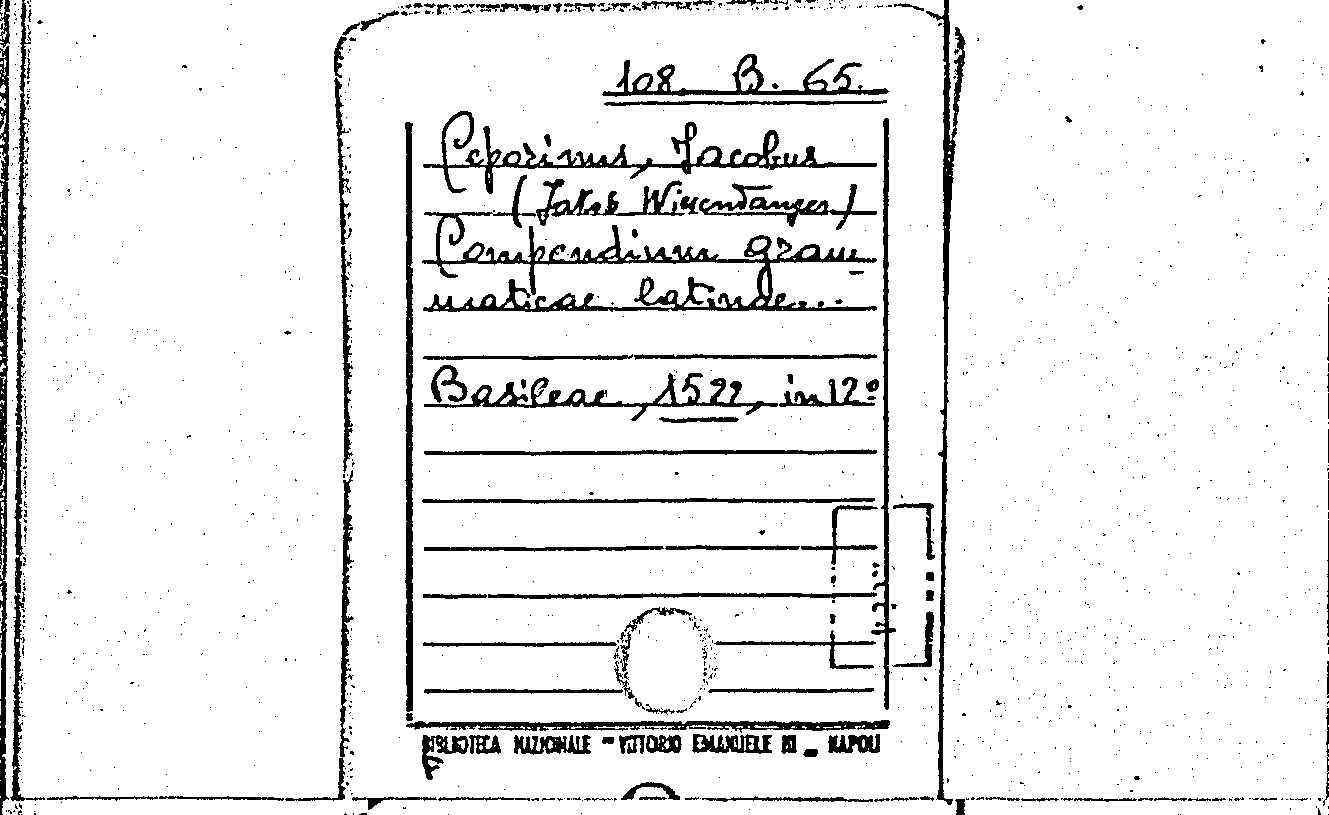 108. B. 65.
Ceporinus, Jacobus
(Jakob Wiesendanger)
Compendium gram
maticae latinae...
Basileae, 1522, in 12º
BIBLIOTECA NAZIONALE - VITTORIO EMANUELE III - NAPOLI